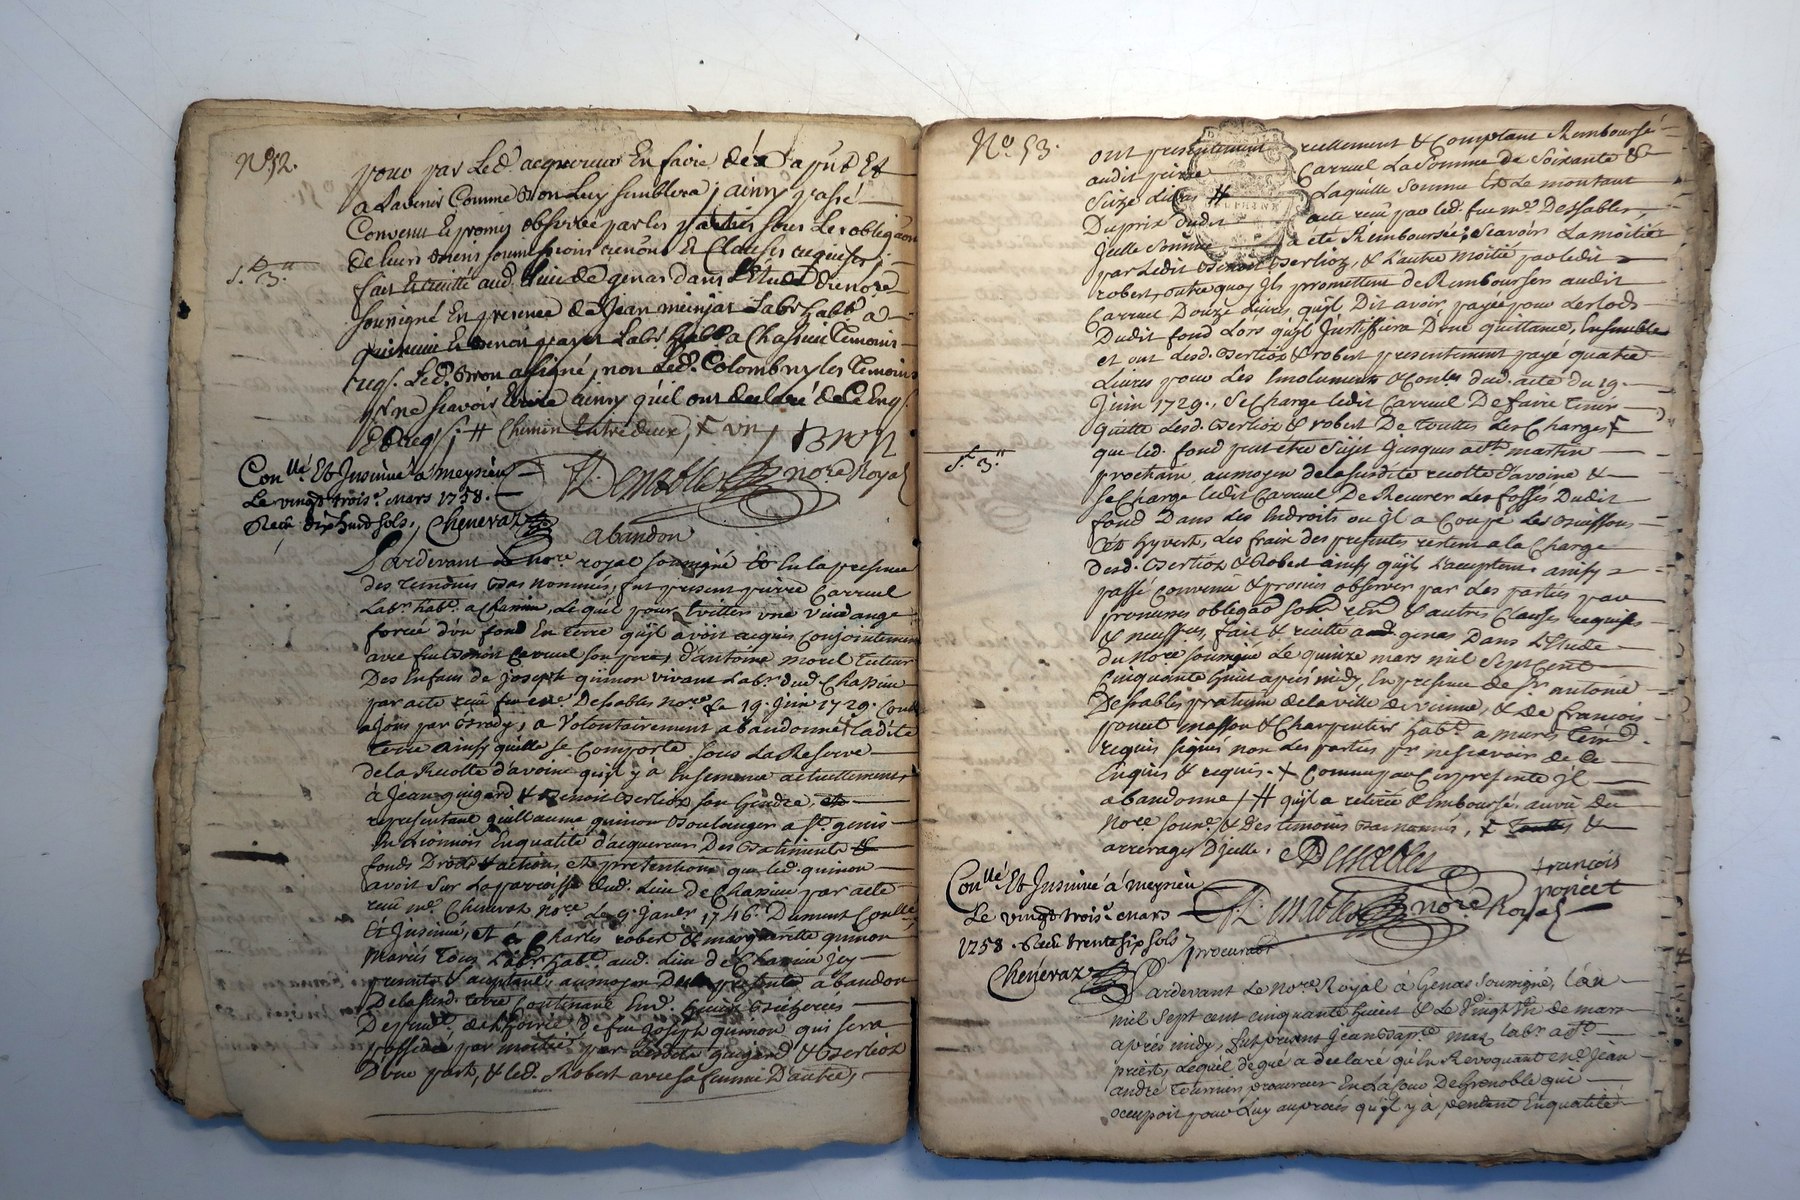 No 52.
pour par Led. acquereur En faire dés a put Et
a Lavenir Comme bon Luy semblera, ainsy passé
Convenu Et promis observer par les parties sous Les obligaon
de leurs biens soumissions renons Et Clauses requises,
fait Et recité aud. Lieu de genas dans L'Etude du nore
soussigné En presence de Jean meinjat Labr habt a
Et benoit payet Labr habt a Chassieu Temoins
reqs. Led. Bron a signé, non Led. Colomb ny les Temoins
pr ne scavoir Ecrire ainsy qu'il ont declaré de Ce Enq
Et req s. # Chemin Entredeux, X un, Bron
Conllé Et Insinué a meyzieu
Le vingt trois e. mars 1758.
Recu dix huit sols, Chenevaz
Desablес nore Royal
abandon
Pardevant Le nore royal soussigné Et En la presence
des temoins bas nommés, fut present pierre Carruel
Labr. habt. a Chassieu, Lequel pour Eviter une vuidange
forcée d'un fond En terre qu'il avoit acquis Conjointement
avec feu benoit Carruel son pere, d'antoine morel tuteur
Des Enfans de joseph quinon vivant Labr. dud. Chassieu
par acte recu feu me. Dessables nore Le 19. juin 1729. Conllé
a Volontairement abandonné Ladite
terre ainsy qu'elle se Comporte sous La Reserve
de la Recolte d'avoine qu'il y à Ensemencé actuellement,
à Jean guigard & Benoit Berlioz son Gendre,
representant guillaume quinon Boulanger a St. genis
En Lionnois En qualité d'acquereur Des Batiments &
fonds Droits & actions et pretentions que led. quinon
avoit sur La parroisse dud. Lieu de Chassieu par acte
recu me. Chenevat nore Le 9. Janer 1746. Dument Conllé
Et Insinué, et à Charles robert & marguerite quinon
mariés Tous Labr. habt. aud. Lieu de Chassieu Icy
presents & acceptant, aumoyen Du present abandon
De la susd. terre Contenant Envd. bicherées
Depend. de L'hoirie de feu Joseph quinon qui sera
possedée par moitié par Lesdits guigard & Berlioz
D'une part, & led. Robert avec sa femme D'autre,
No 53.
ont presentement reellement & Comptant Remboursé
audit pierre Carruel La Somme de Soixante &
Seize Livres # Laquelle Somme Est Le montant
Du prix dudit acte recu par led. feu me. Dessables,
Jcelle Somme a été Remboursée, scavoir La moitié
par Ledit Benoit Berlioz, & L'autre moitié par ledit
robert, outre quoy Ils promettent de Rembourser audit
Carruel Douze Livres, qu'il Dit avoir payée pour Les lods
Dudit fond Lors qu'il Justiffiera D'une quittance, Ensemble
et ont Lesd. Berlioz & robert presentement payé quatre
Livres pour Les Emoluments & Conlle dud. acte du 19.
Juin 1729., Se Charge ledit Carruel De faire tenir
quitte Lesd. Berlioz & robert De toutes Les Charges X
que led. fond peut etre Sujet Jusques a St. martin
prochain, aumoyen de la susdite recolte d'avoine &
se Charge Ledit Carruel De Recurer Les fossés Dudit
fond Dans Les Endroits ou Il a Coupé Les buissons
Cet hyvert, Les frais des presentes restent a la Charge
Desd. Berlioz & Robert ainsy qu'ils L'acceptent. ainsy
passé Convenu & promis observer par Les parties par
promesses obligaon soumon renon & autres Clauses requises
& necesres, fait & recité aud. genas Dans L'Etude
du Nore soussigné Le quinze mars mil Sept Cent
Cinquante huit apres midy, En presence de Sr. antoine
Dessables praticien de la ville de vienne, & de francois
poncet masson & Charpentier habt. a mure, Temoins
requis signés non Les parties pr ne scavoir de Ce
Enquis & requis. X Comme par Ces presentes Il
abandonne, # qu'il a retirée & Emboursé, au vu Du
Nore soussé & Des temoins Bas nommés, X toutes &
arrerages D'jcelle.
Dessables
francois
poncet
Conllé Et Insinué à meyzieu
Le vingt trois e. mars
1758. Recu trente six sols
Chenevaz
Nore Royal
procuraon
Pardevant Le Nore Royal à Genas soussigné, L'an
mil Sept cent cinquante huit & Le Vingt un de mars
apres midy, fut present Jean bapte. maz Labr. a St.
priest, Lequel de gré a declaré qu'En Revoquant me. Jean
andré tournus procureur En La Cour De Grenoble qui
occupoit pour Luy au procès qu'il y à pendant En qualité